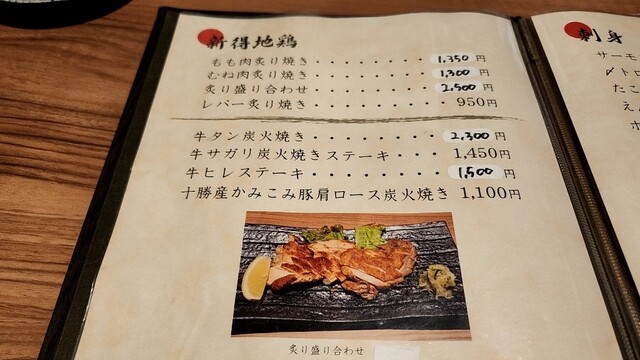 新得地鶏
もも肉炙り焼き・・・・・・・・1,350円
むね肉炙り焼き・・・・・・・・1,300円
炙り盛り合わせ・・・・・・・・2,500円
レバー炙り焼き・・・・・・・・950円
牛タン炭火焼き・・・・・・・・2,300円
牛サガリ炭火焼きステーキ・・・1,450円
牛ヒレステーキ・・・・・・・・1,500円
十勝産かみこみ豚肩ロース炭火焼き 1,100円
炙り盛り合わせ
刺身
サーモ
〆ト
たこ
えん
ホ